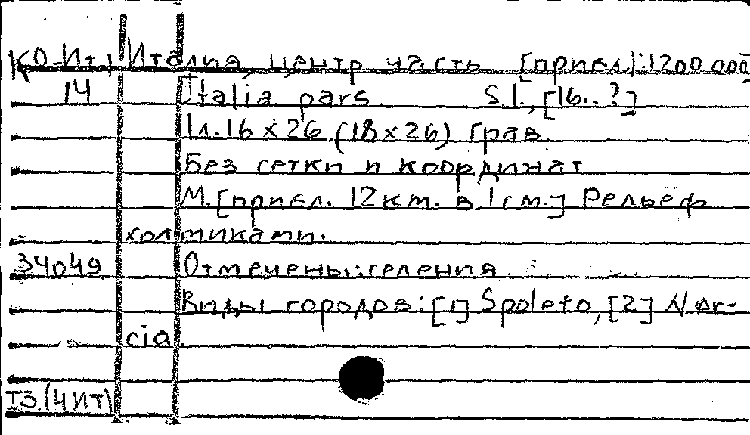 КО-Ит1 Италия, центр часть [прибл]1:1200 000
14 Italia pars. S.l., [16..?]
1 л. 16 x 26 (18 x 26) грав.
Без сетки и координат
М. [прибл. 12 км. в 1 см.] Рельеф
холмиками.
34049 Отмечены: селения
Виды городов: [1] Spoleto, [2] Nor-
cia.
Т3.(4ИТ)